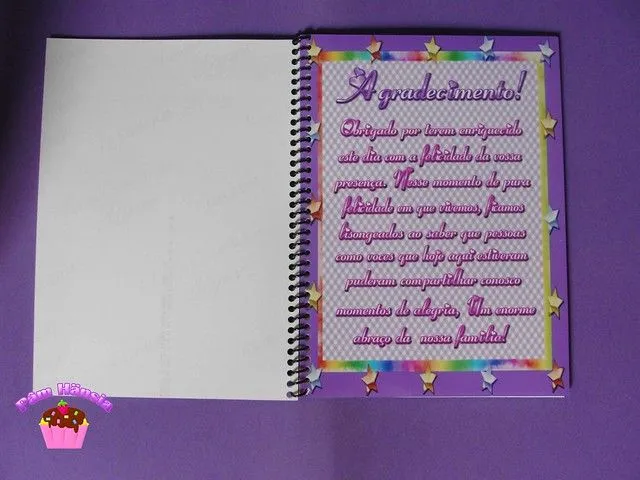 Agradecimento!
Obrigado por terem enriquecido
este dia com a felicidade da vossa
presença. Nesse momento de pura
felicidade em que vivemos, ficamos
lisongeados ao saber que pessoas
como voces que hoje aqui estiveram
puderam compartilhar conosco
momentos de alegria, Um enorme
abraço da nossa família!
Pâm Hänsia